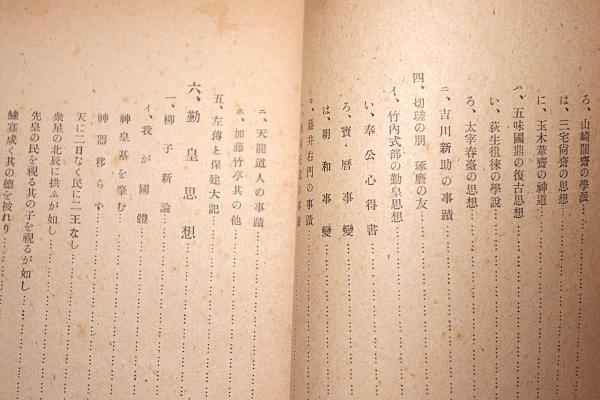 ろ、山崎闇齋の學派
は、三宅尙齋の思想
に、玉木葦齋の神道
ハ、五味國鼎の復古思想
い、荻生徂徠の學說
ろ、太宰春臺の思想
ニ、吉川新助の事蹟
四、切瑳の朋　琢磨の友
イ、竹內式部の勤皇思想
い、奉公心得書
ろ、寶曆事變
は、明和事變
ロ、藤井右門の事蹟
ニ、天龍道人の事蹟
ホ、加藤竹亭其の他
五、左傳と保建大記
六、勤皇思想
一、柳子新論
イ、我が國體
神皇基を肇む
神器移らず
天に二日なく民に二王なし
衆星の北辰に拱ふが如し
先皇の民を視る其の子を視るが如し
鰥寡咸く其の德を被れり